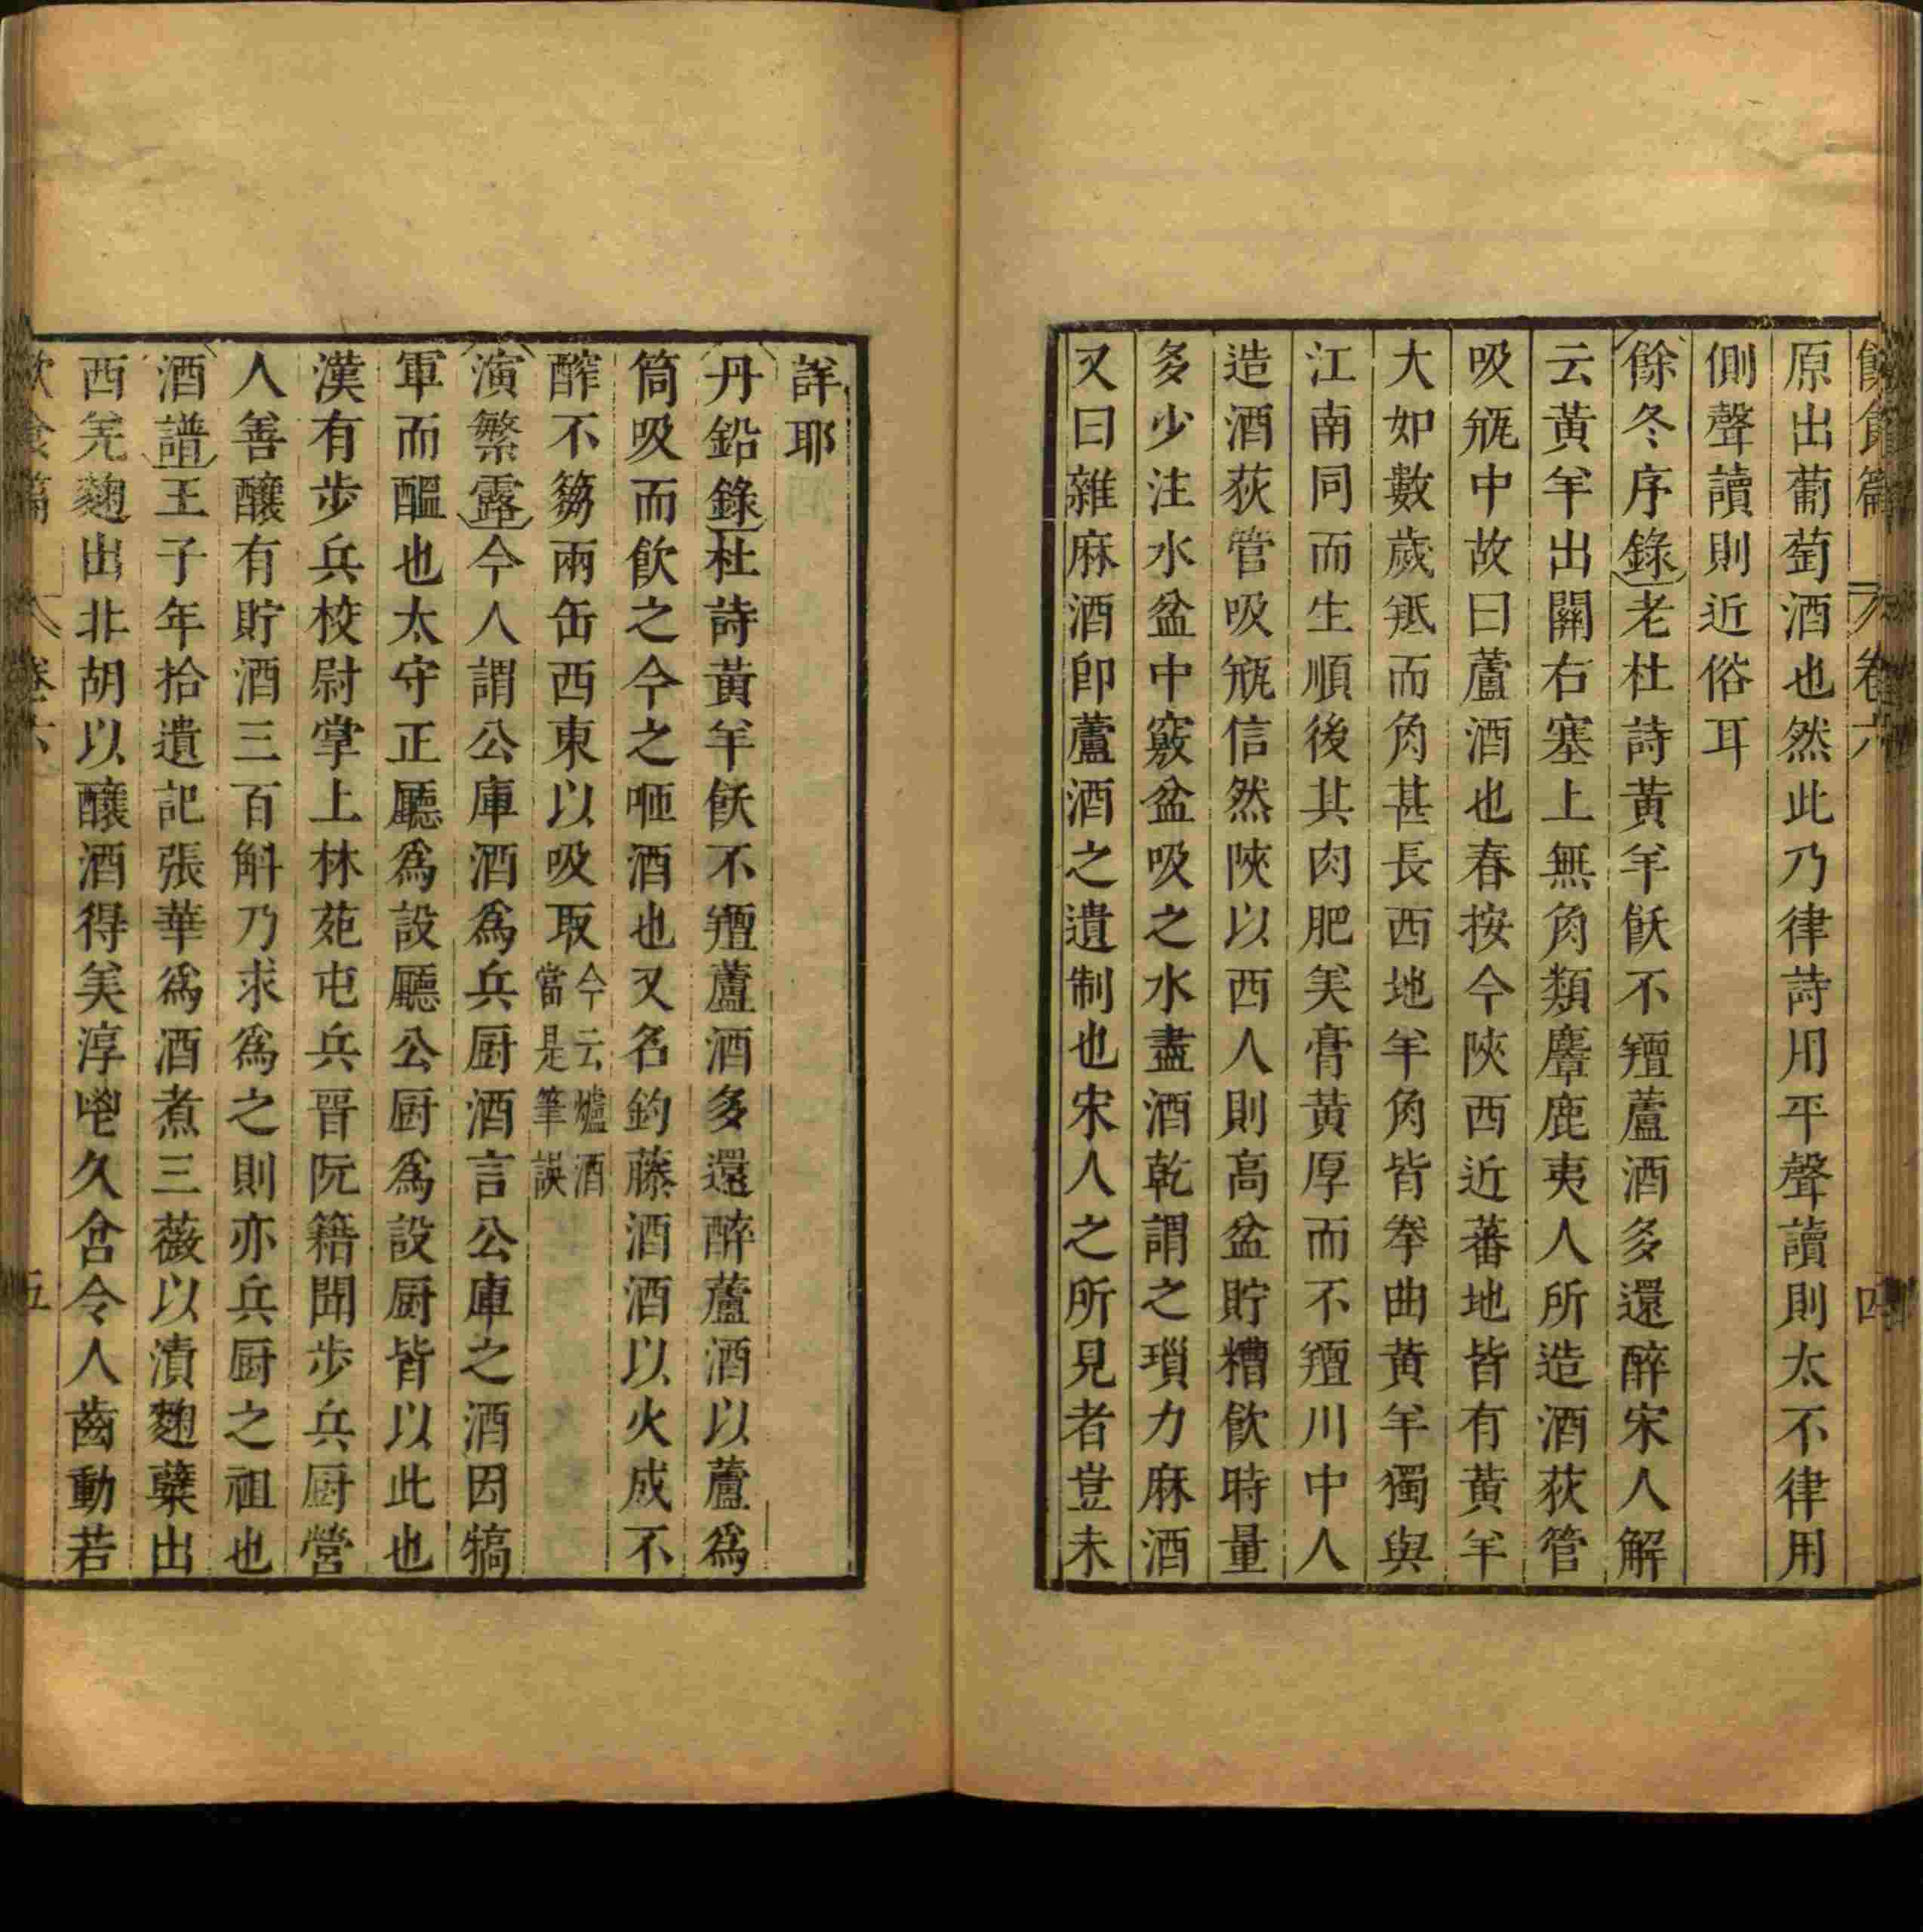 卷六 四
原出葡萄酒也然此乃律詩用平聲讀則太不律用
側聲讀則近俗耳
餘冬序錄老杜詩黃羊飫不羶蘆酒多還醉宋人解
云黃羊出關右塞上無角類麞鹿夷人所造酒荻管
吸瓶中故曰蘆酒也春按今陝西近蕃地皆有黃羊
大如數歲羝而角甚長西地羊角皆拳曲黃羊獨與
江南同而生順後其肉肥美膏黃厚而不羶川中人
造酒荻管吸瓶信然陝以西人則高盆貯糟飲時量
多少注水盆中竅盆吸之水盡酒乾謂之瑣力麻酒
又曰雜麻酒卽蘆酒之遺制也宋人之所見者豈未
詳耶
丹鉛錄杜詩黃羊飫不羶蘆酒多還醉蘆酒以蘆爲
筒吸而飲之今之咂酒也又名釣藤酒酒以火成不
醡不篘兩缶西東以吸取今云爐酒當是筆誤
演繁露今人謂公庫酒爲兵厨酒言公庫之酒因犒
軍而醞也太守正廳爲設廳公厨爲設厨皆以此也
漢有步兵校尉掌上林苑屯兵晉阮籍聞步兵厨營
人善釀有貯酒三百斛乃求爲之則亦兵厨之祖也
酒譜王子年拾遺記張華爲酒煮三薇以漬麴櫱出
西羌麴出北胡以釀酒得美淳鬯久含令人齒動若
飲食篇 卷六 五